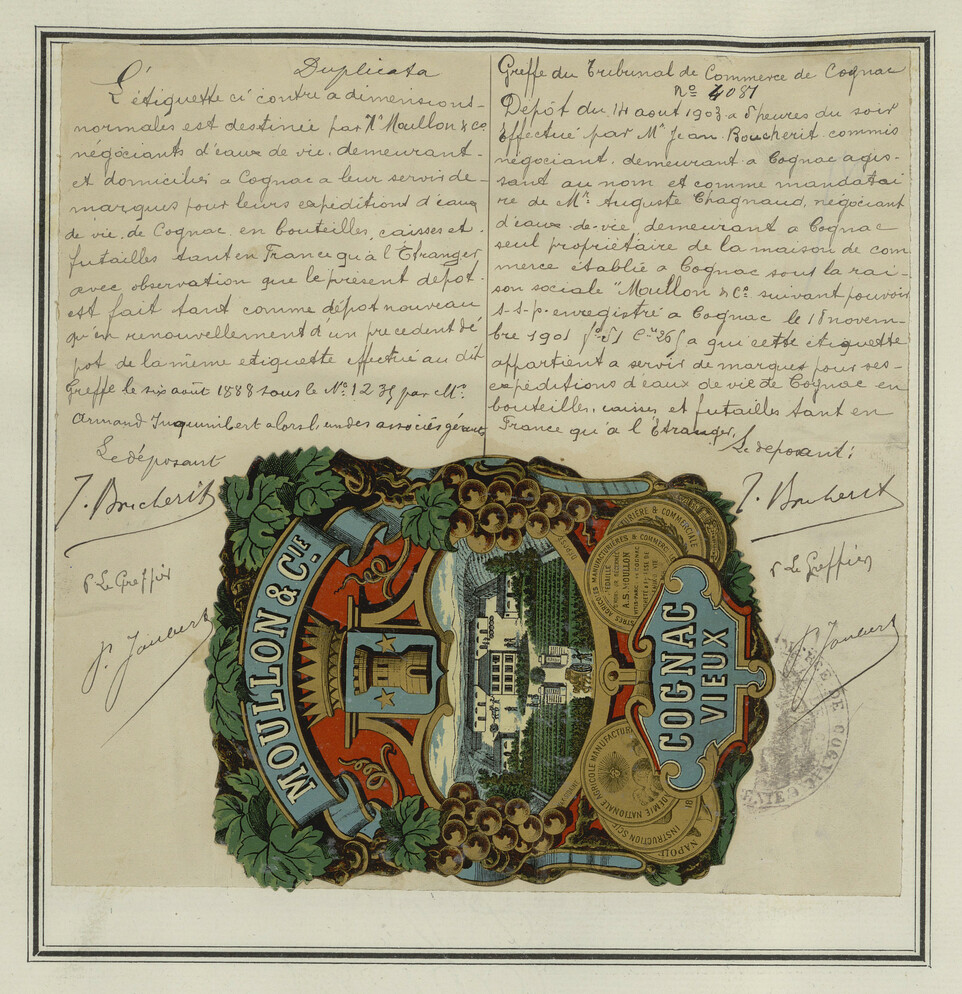 Duplicata
L'étiquette ci contre a dimensions
normales est destinée par Mrs Moullon & Co
négociants d'eaux de vie, demeurant
et domiciliés a Cognac a leur servir de
marques pour leurs expéditions d'eaux
de vie de Cognac en bouteilles, caisses et
futailles tant en France qu'à l'Etranger,
avec observation que le présent dépot
est fait tant comme dépot nouveau
qu'en renouvellement d'un precedent dé
pot de la même etiquette effectué au dit
Greffe le six août 1888 sous le No 1235 par Mr.
Armand Inquimbert alors l'un des associés gérants
Le déposant
J. Boucherit
p Le Greffier
P. Jaubert
Greffe du Tribunal de Commerce de Cognac
No 4081
Depôt du 14 aout 1903 a 5 heures du soir
Effectué par Mr Jean Boucherit commis
négociant, demeurant a Cognac agis-
sant au nom et comme mandatai
re de Mr. Auguste Chagnaud, négociant
d'eaux-de-vie demeurant a Cognac
seul propriétaire de la maison de com
merce établie a Cognac sous la rai-
son sociale "Moullon & Co. suivant pouvoir
s-s-p. enregistré a Cognac le 18 novem-
bre 1901 a qui cette étiquette
appartient a servir de marques pour ses
expéditions d'eaux de vie de Cognac en
bouteilles, caisses et futailles tant en
France qu'a l'Etranger.
Le deposant:
J. Boucherit
p Le Greffier
P. Jaubert
MOULLON & CIE.
COGNAC
VIEUX
A.S. MOULLON
DE COGNAC